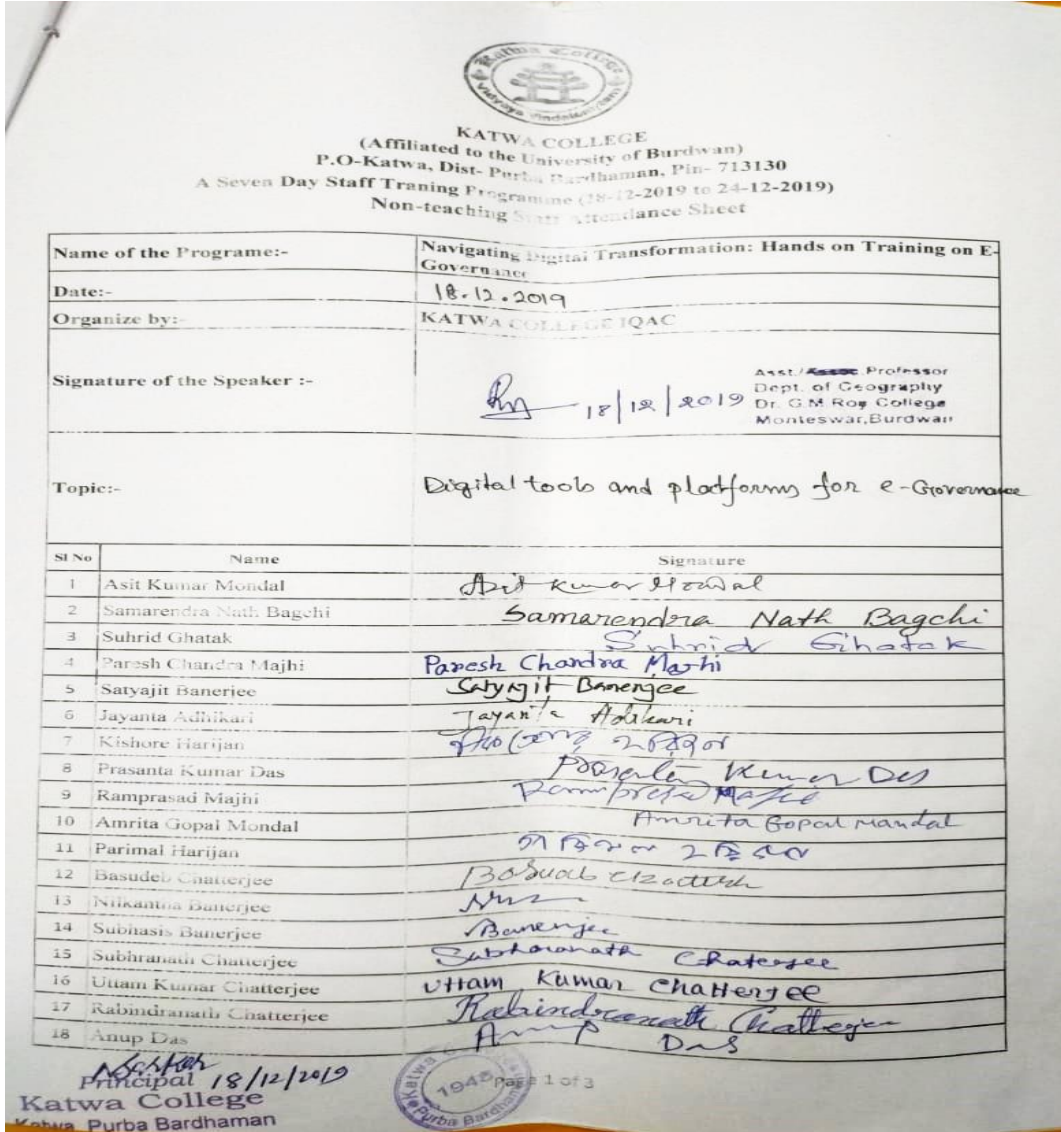 Katwa College
KATWA COLLEGE
(Affiliated to the University of Burdwan)
P.O-Katwa, Dist- Purba Bardhaman, Pin- 713130
A Seven Day Staff Traning Programme (18-12-2019 to 24-12-2019)
Non-teaching Staff Attendance Sheet
Name of the Programe:- Navigating Digital Transformation: Hands on Training on E-
Governance
Date:- 18.12.2019
Organize by:- KATWA COLLEGE IQAC
Signature of the Speaker :- 18/12/2019
Asst./Assoc. Professor
Dept. of Geography
Dr. G.M.Roy College
Monteswar,Burdwan
Topic:- Digital tools and platforms for e-Governance
Sl No Name Signature
1 Asit Kumar Mondal Asit Kumar Mondal
2 Samarendra Nath Bagchi Samarendra Nath Bagchi
3 Suhrid Ghatak Suhrid Ghatak
4 Paresh Chandra Majhi Paresh Chandra Majhi
5 Satyajit Banerjee Satyajit Banerjee
6 Jayanta Adhikari Jayanta Adhikari
7 Kishore Harijan
8 Prasanta Kumar Das Prasanta Kumar Das
9 Ramprasad Majhi Ramprasad Majhi
10 Amrita Gopal Mondal Amrita Gopal Mandal
11 Parimal Harijan পরিমল হরিজন
12 Basudeb Chatterjee Basudeb Chatterjee
13 Nilkantha Banerjee
14 Subhasis Banerjee Banerjee
15 Subhranath Chatterjee Subhranath Chaterjee
16 Uttam Kumar Chatterjee Uttam Kumar Chatterjee
17 Rabindranath Chatterjee Rabindranath Chatterjee
18 Anup Das Anup Das
Principal 18/12/2019
Katwa College
Katwa, Purba Bardhaman
1948
Page 1 of 3